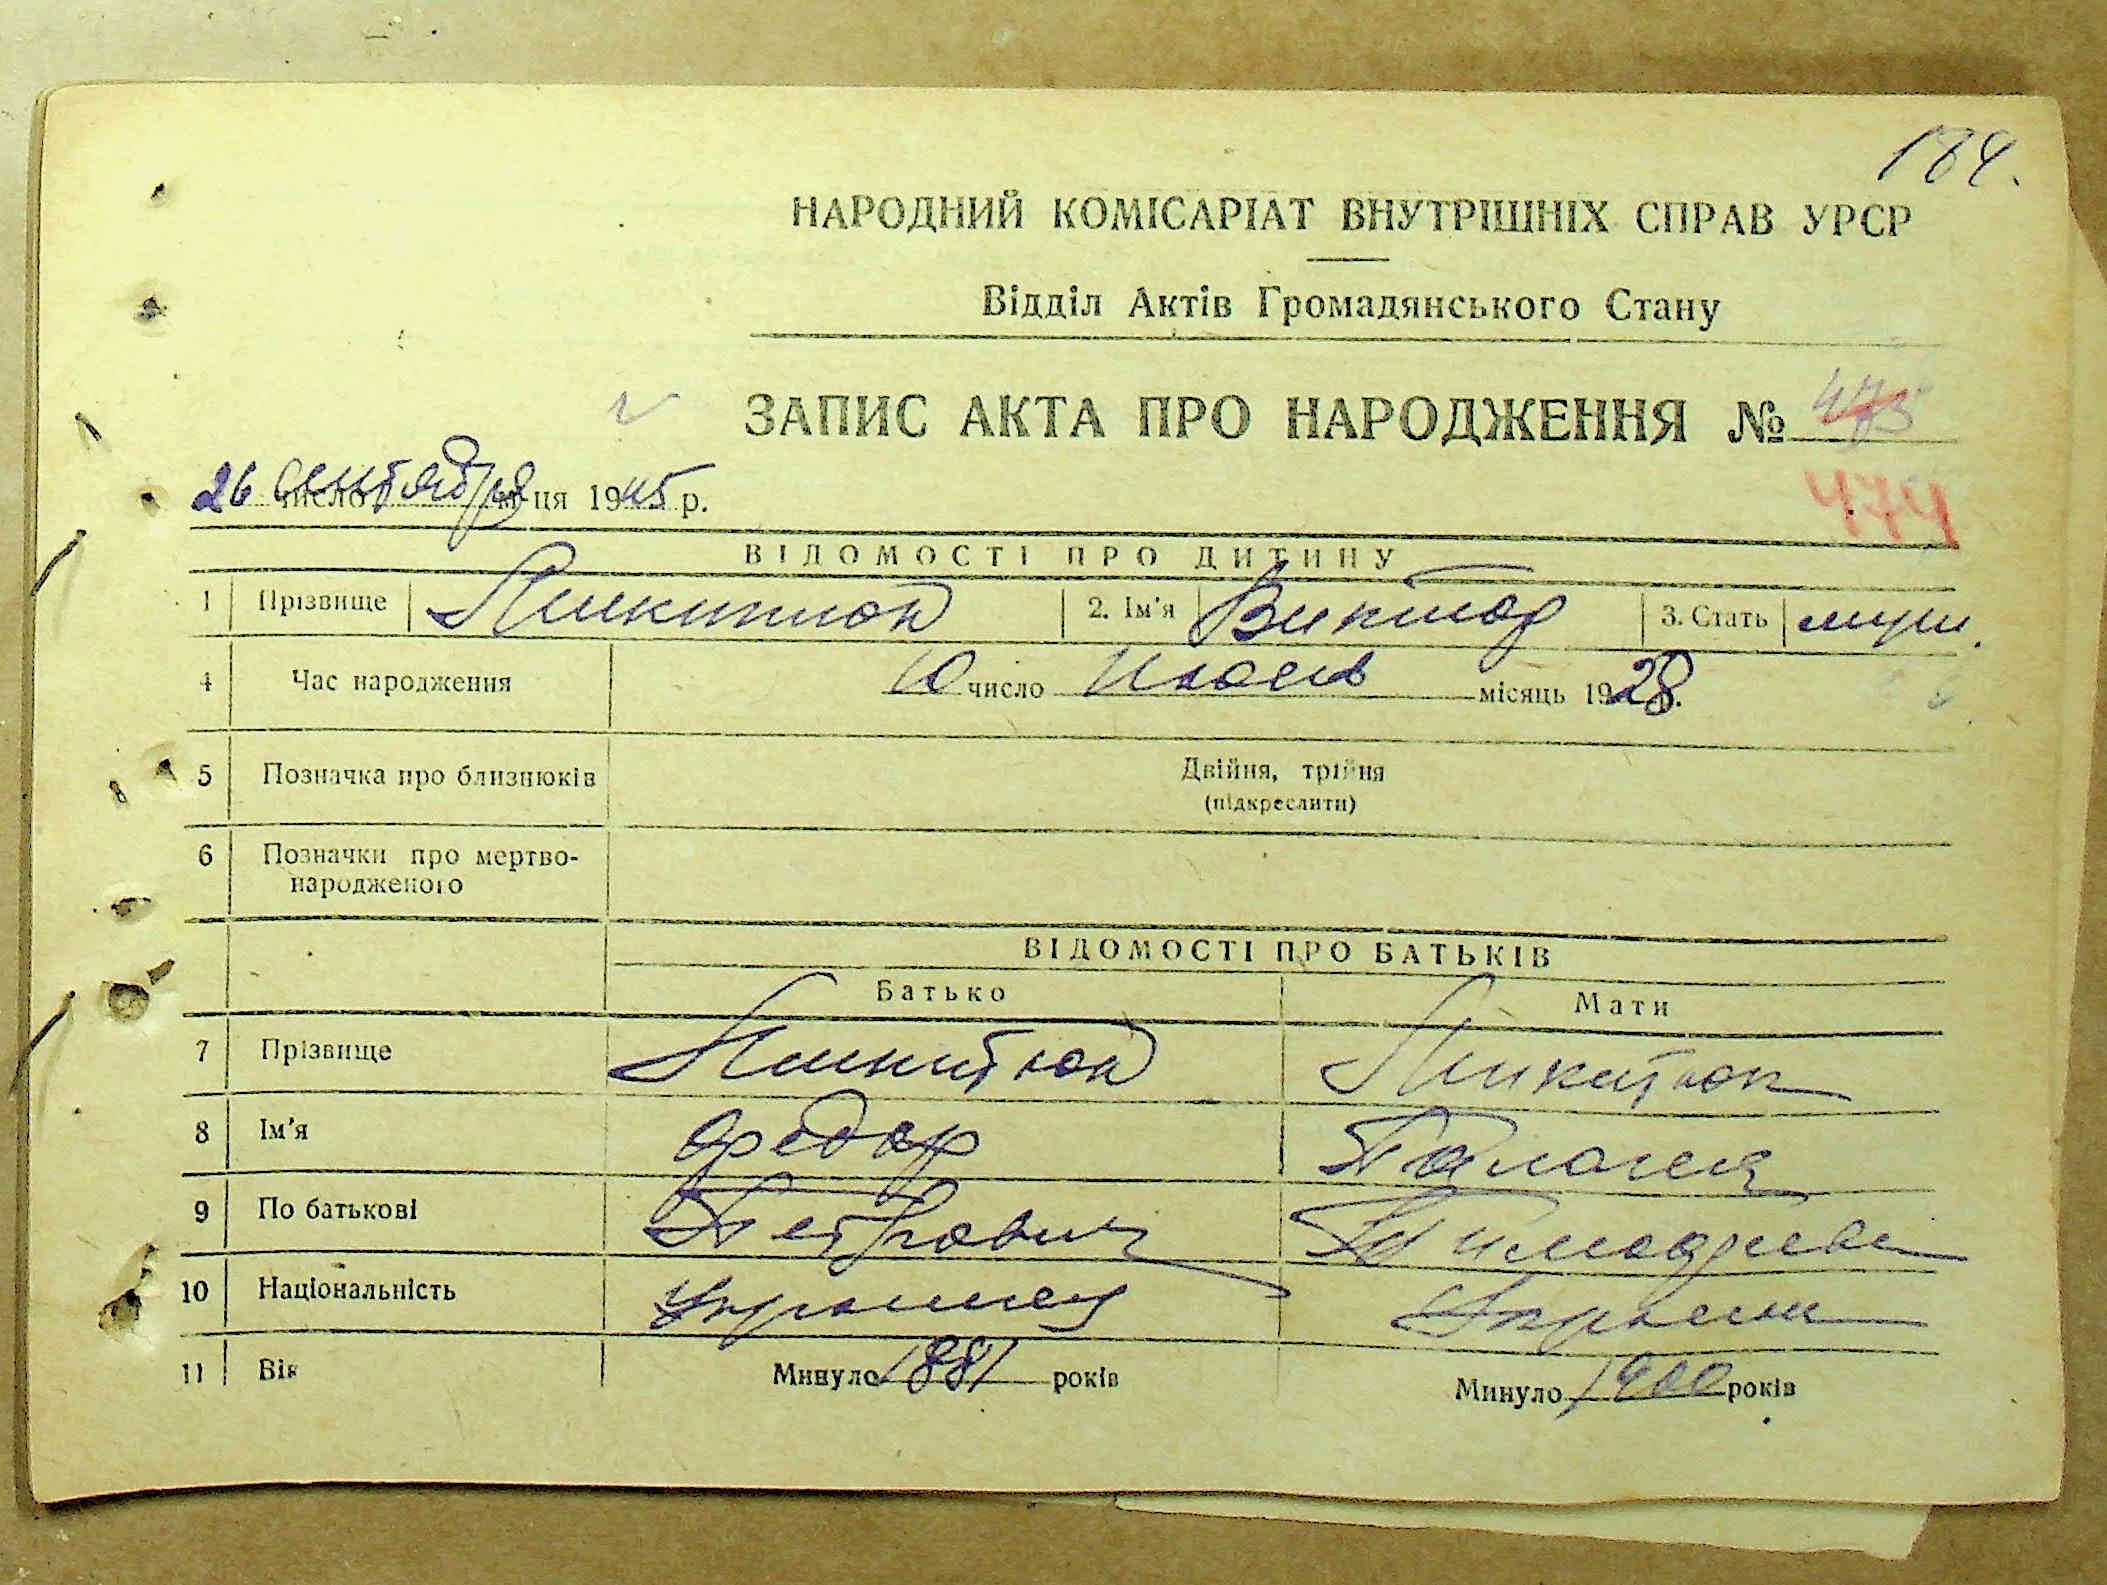 184.
НАРОДНИЙ КОМІСАРІАТ ВНУТРІШНІХ СПРАВ УРСР
Відділ Актів Громадянського Стану
ЗАПИС АКТА ПРО НАРОДЖЕННЯ № 475
474
26 число сентября м-ця 1945 р.
ВІДОМОСТІ ПРО ДИТИНУ
1 Прізвище Никитюк 2. Ім'я Виктор 3. Стать муж.
4 Час народження 10 число місяць 1928 р.
5 Позначка про близнюків Двійня, трійня
(підкреслити)
6 Позначки про мертво-
народженого
ВІДОМОСТІ ПРО БАТЬКІВ
Батько Мати
7 Прізвище Никитюк Никитюк
8 Ім'я Федор
9 По батькові Петрович Тимофеевн
10 Національність Украинец Украин
11 Вік Минуло 1881 років Минуло 1900 років